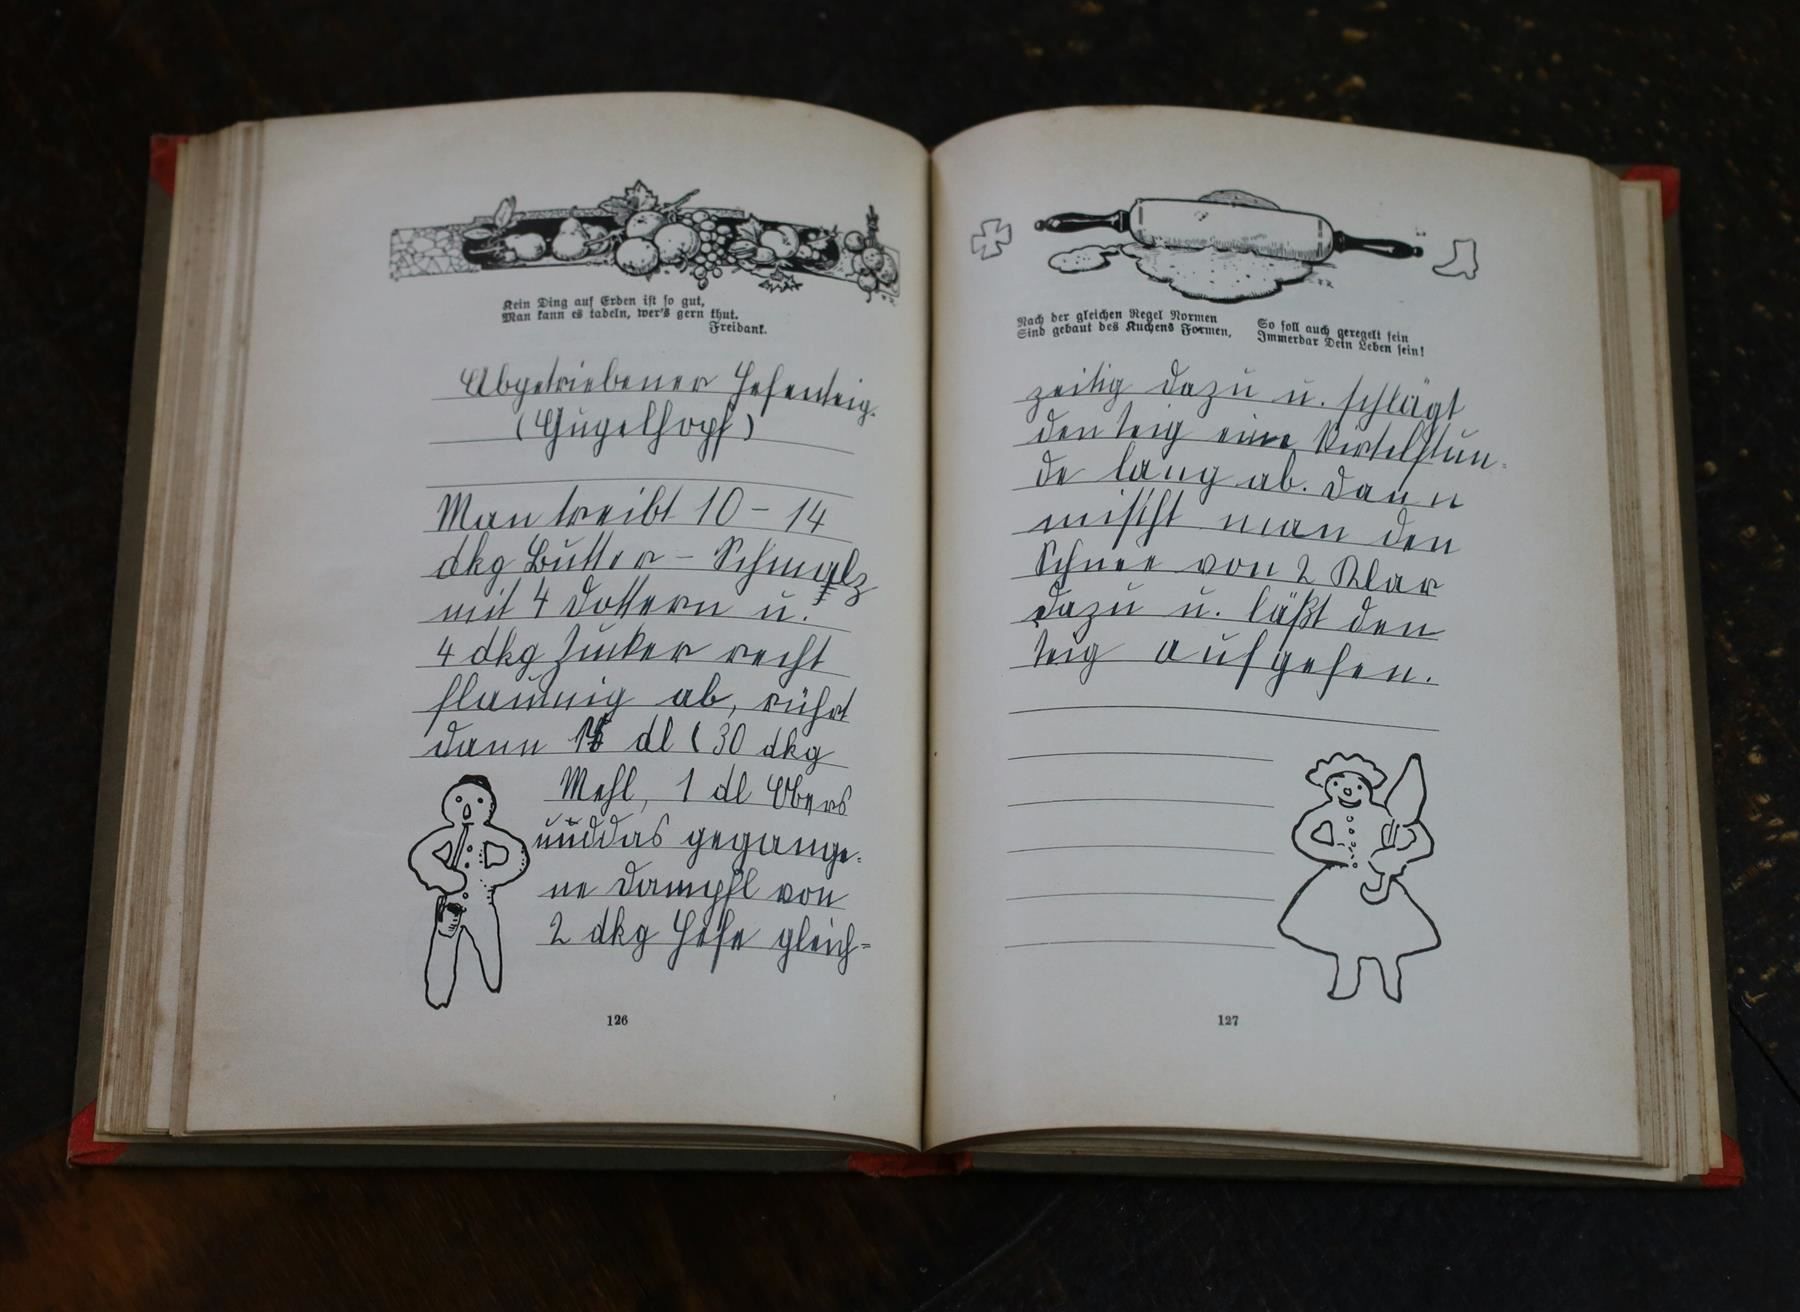 Kein Ding auf Erden ist so gut,
Man kann es tadeln, wer's gern thut.
Freidank.
Abgetriebener Hefenteig.
(Gugelhopf)
Man treibt 10 – 14
dkg Butter – Schmalz
mit 4 Dottern u.
4 dkg Zucker recht
flaumig ab, rührt
dann dl (30 dkg
Mehl, 1 dl Obers
und das gegange-
ne Dampfl von
2 dkg Hefe gleich-
126
Nach der gleichen Regel Normen
Sind gebaut des Kuchens Formen,
So soll auch geregelt sein
Immerdar Dein Leben sein!
zeitig dazu u. schlägt
den teig eine Virtelstun-
de lang ab. Dann
mischt man den
Schnee von 2 Klar
dazu u. läßt den
teig aufgehen.
127